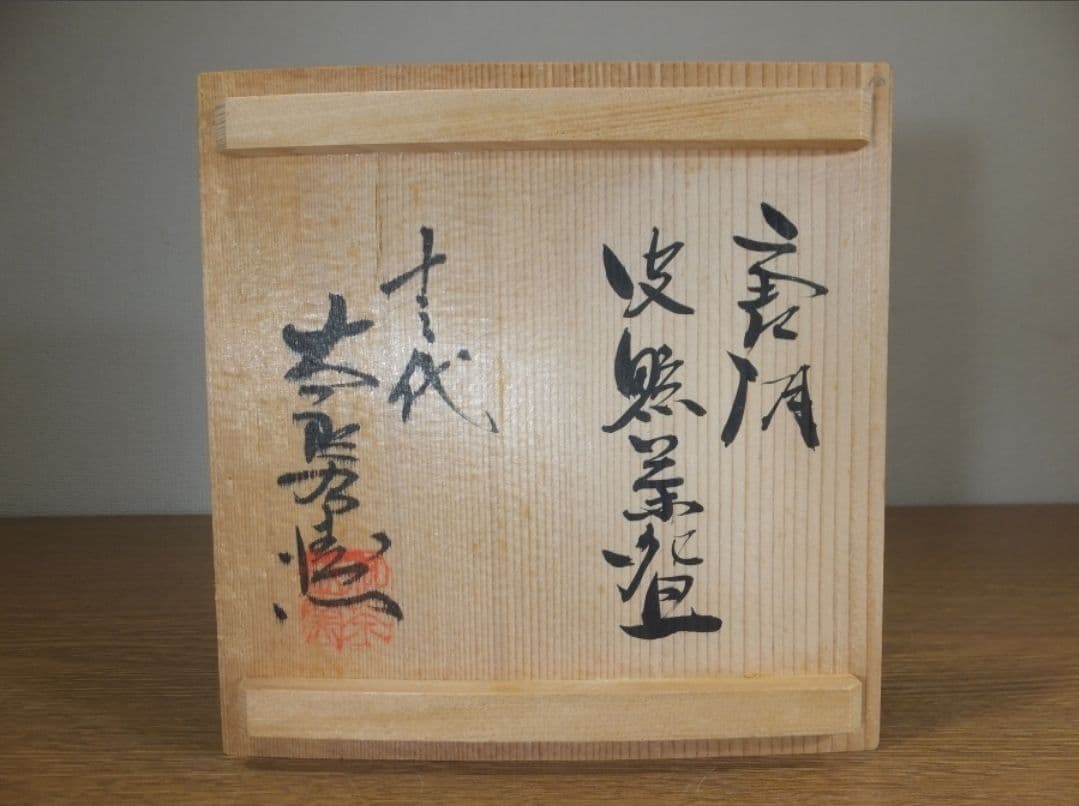 唐津
皮鯨茶盌
十三代
太郎右衛門